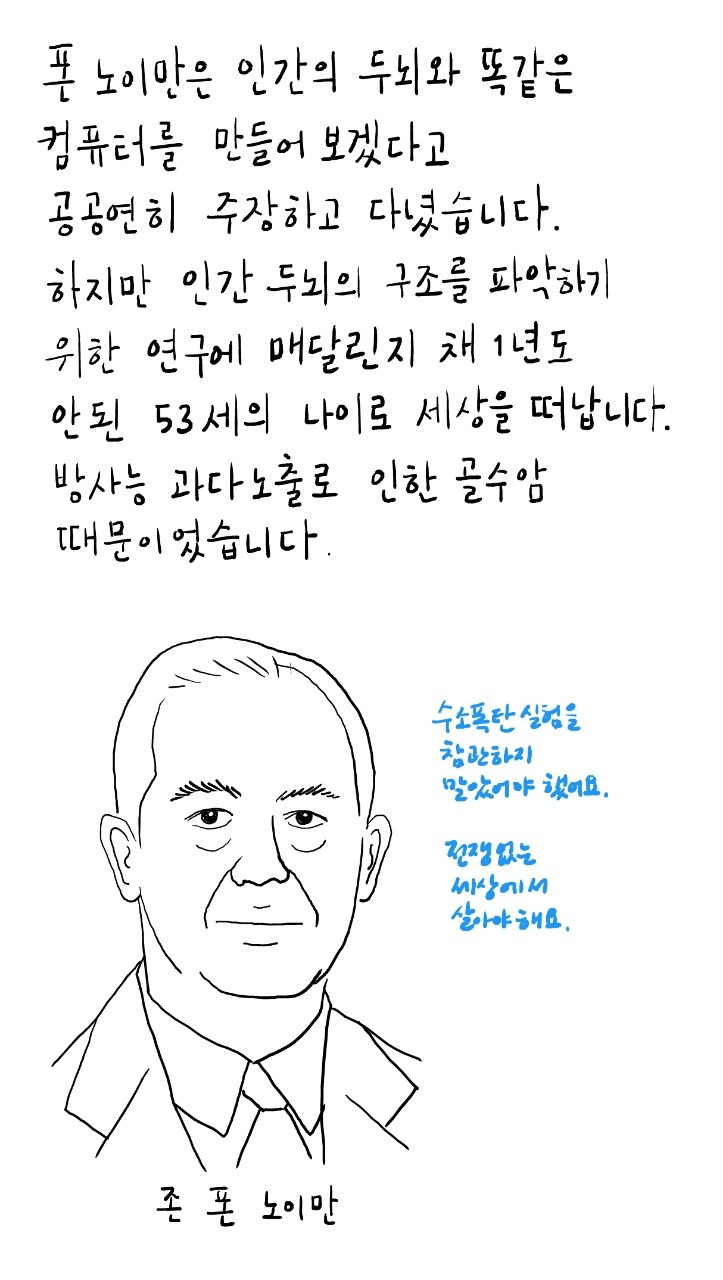 폰 노이만은 인간의 두뇌와 똑같은
컴퓨터를 만들어 보겠다고
공공연히 주장하고 다녔습니다.
하지만 인간 두뇌의 구조를 파악하기
위한 연구에 매달린지 채 1년도
안된 53세의 나이로 세상을 떠납니다.
방사능 과다노출로 인한 골수암
때문이었습니다.
수소폭탄 실험을
참관하지
말았어야 했어요.
전쟁없는
세상에서
살아야해요.
존 폰 노이만